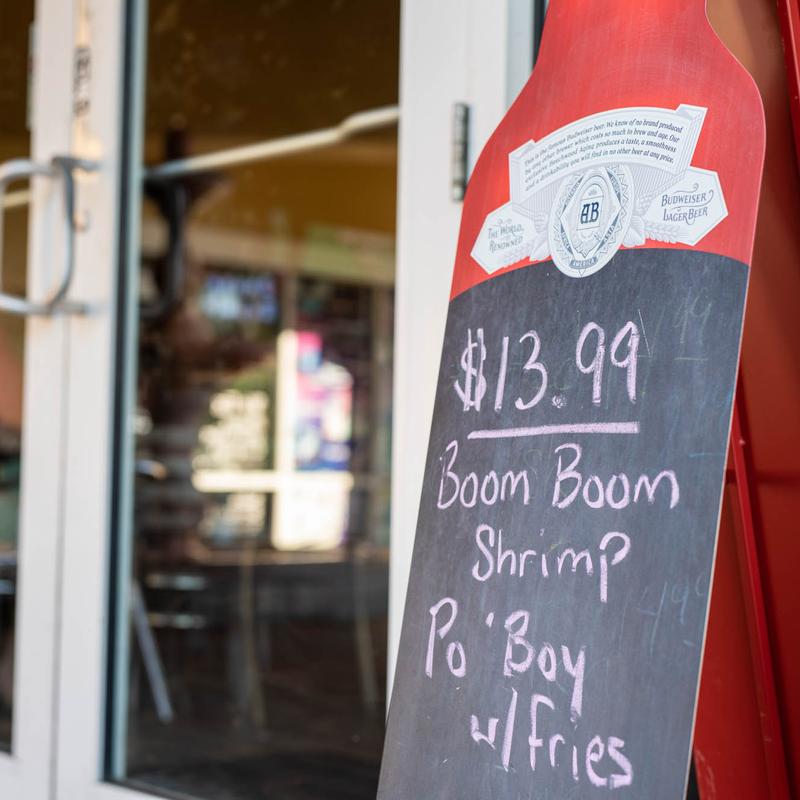 This is the famous Budweiser beer. We know of no brand produced
by any other brewer which costs so much to brew and age. Our
exclusive Beechwood Aging produces a taste, a smoothness
and a drinkability you will find in no other beer at any price.
THE WORLD
RENOWNED
AB
AMERICA
BUDWEISER
LAGER BEER
$13.99
Boom Boom
Shrimp
Po 'Boy
w/fries